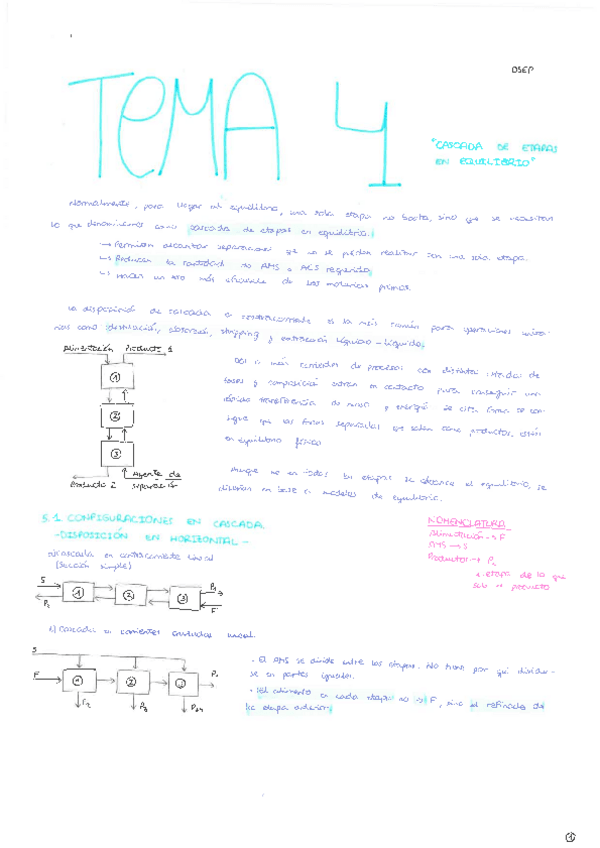 OSEP
TEMA 4
"CASCADA DE ETAPAS
EN EQUILIBRIO"
Normalmente, para llegar al equilibrio, una sola etapa no basta, sino que se necesitan
lo que denominamos como cascada de etapas en equilibrio.
→ Permiten alcanzar separaciones que no se pueden realizar con una sola etapa.
↳ Reducen la cantidad de AMS o AES requerida
↳ Hacen un uso más eficiente de las materias primas.
La disposición de cascada en contracorriente es la más común para operaciones
como destilación, absorción, stripping y extracción líquido-líquido.
Alimentación Producto 1
①
②
③
Producto 2
Agente de
separación
Dos o más corrientes de proceso con distintos estados de
fases y composición entran en contacto para conseguir una
rápida transferencia de masa y energía de esta forma se con-
sigue que las fases separadas que salen como productos, estén
en equilibrio físico
Aunque no en todas las etapas se alcance el equilibrio, se
diseñan en base a modelos de equilibrio.
5.1. CONFIGURACIONES EN CASCADA
-DISPOSICIÓN EN HORIZONTAL-
NOMENCLATURA
Alimentación → F
AMS → S
Productos → P
etapa de la que
sale el producto
a) Cascada en contracorriente lineal
(Sección simple)
S ① ② ③ P₁
F
Cascada en corrientes cruzadas lineal.
S
F ① ② ③ P₁
P₂ P₃
· El AMS se divide entre las etapas. No tiene por qué dividir-
se en partes iguales.
· El alimento en cada etapa no es F, sino el refinado de
la etapa anterior.
①